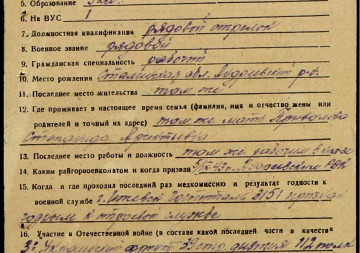 5. Образование
6. На ВУС 1
7. Должностная квалификация рядовой стрелок
8. Военное звание рядовой
9. Гражданская специальность рабочий
10. Место рождения Сталинская обл. р-н
11. Последнее место жительства там же
12. Где проживает в настоящее время семья (фамилия, имя и отчество жены или
родителей и точный их адрес) там же мать
13. Последнее место работы и должность там же рабочим
14. Каким райгорвоенкоматом и когда призван РВК
15. Когда и где проходил последний раз медкомиссию и результат годности к
военной службе г. госпиталь 3151 признан
годным к строевой службе
16. Участие в Отечественной войне (в составе какой последней части и качестве)
3й Украинский фронт стр. дивизия 112 полк